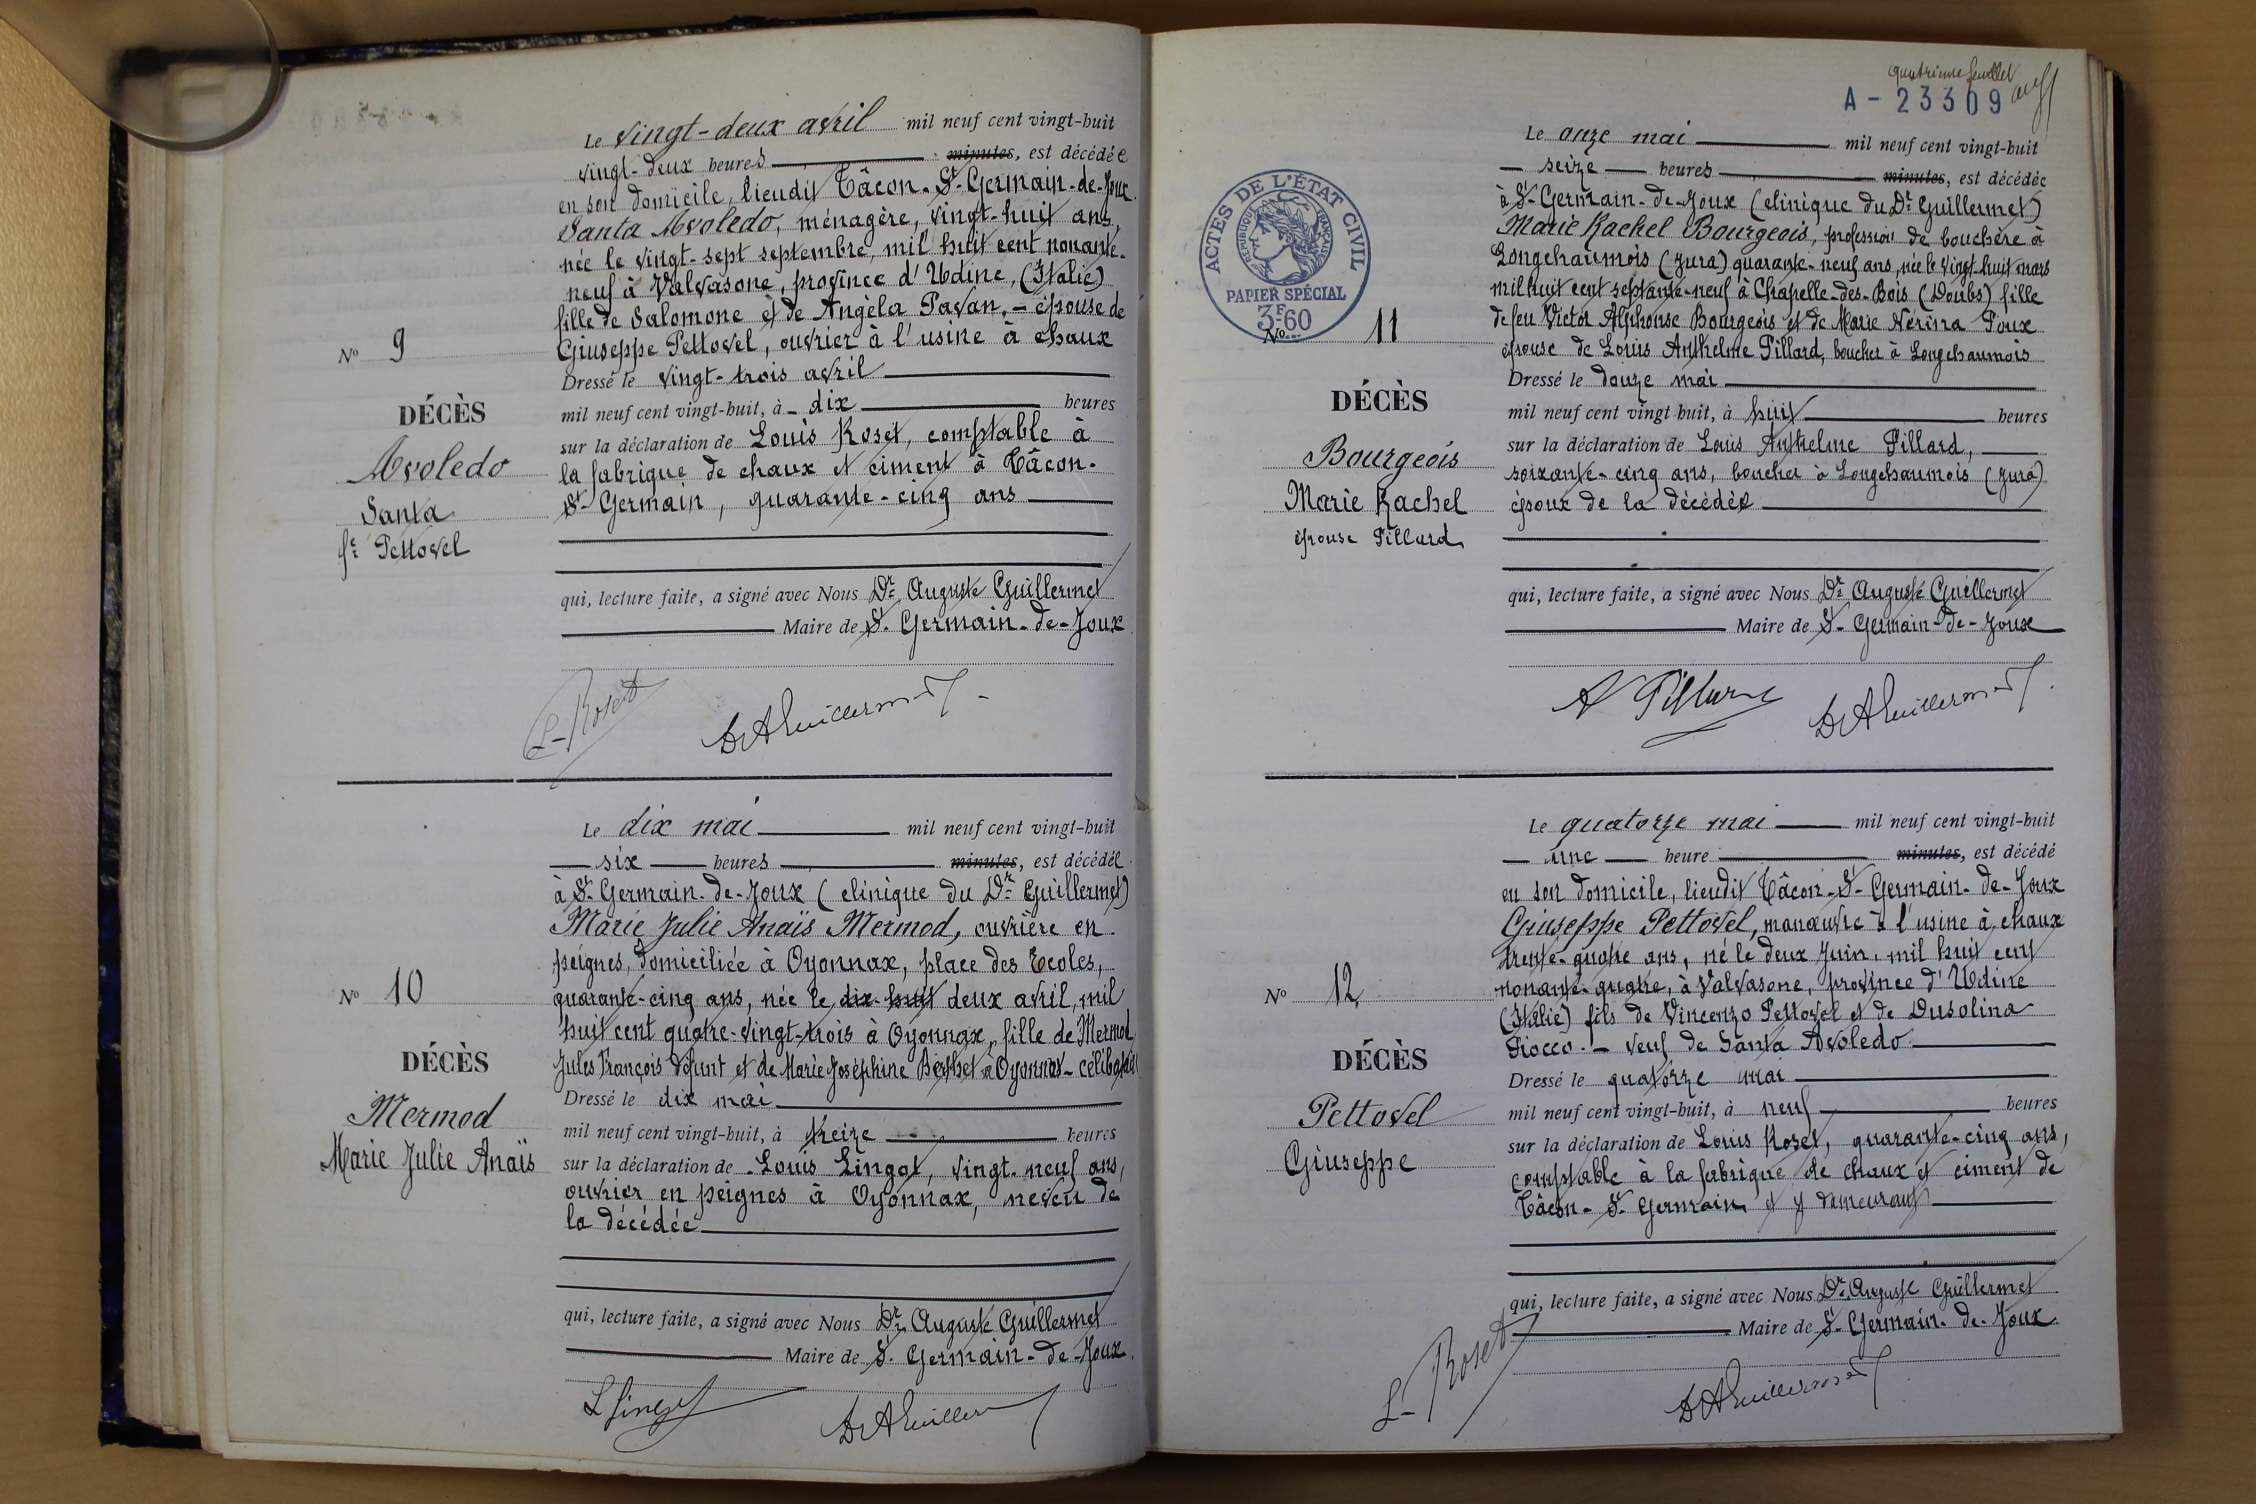 Le vingt-deux avril mil neuf cent vingt-huit
vingt-deux heures minutes, est décédée
en son domicile, lieudit Tâcon. St-Germain-de-Joux
Santa Avoledo, ménagère, vingt-huit ans,
née le vingt-sept septembre, mil huit cent nonante-
neuf à Valvasone, province d'Udine, (Italie)
fille de Salomone et de Angèla Pavan, - épouse de
Giuseppe Pettovel, ouvrier à l'usine à chaux
Nº 9
DÉCÈS
Avoledo
Santa
fe Pettovel
Dressé le vingt-trois avril
mil neuf cent vingt-huit, à dix heures
sur la déclaration de Louis Roset, comptable à
la fabrique de chaux et ciment à Tâcon-
St Germain, quarante-cinq ans
qui, lecture faite, a signé avec Nous Dr Auguste Guillermet
Maire de St-Germain-de-Joux
L. Roset DrAGuillermet
Le dix mai mil neuf cent vingt-huit
six heures minutes, est décédée
à St Germain-de-Joux (clinique du Dr Guillermet)
Marie Julie Anaïs Mermod, ouvrière en
peignes, domiciliée à Oyonnax, place des Ecoles,
quarante-cinq ans, née le dix-huit deux avril, mil
huit cent quatre-vingt-trois à Oyonnax, fille de Mermod
Jules François défunt et de Marie Joséphine Berthet à Oyonnax - célibataire
Nº 10
DÉCÈS
Mermod
Marie Julie Anaïs
Dressé le dix mai
mil neuf cent vingt-huit, à treize heures
sur la déclaration de Louis Lingot, vingt-neuf ans,
ouvrier en peignes à Oyonnax, neveu de
la décédée
qui, lecture faite, a signé avec Nous Dr Auguste Guillermet
Maire de St-Germain-de-Joux
L Lingot DrAGuillermet
quatrième feuillet
A-23309
ACTES DE L'ÉTAT CIVIL
RÉPUBLIQUE FRANÇAISE
PAPIER SPÉCIAL
3F60
Le onze mai mil neuf cent vingt-huit
seize heures minutes, est décédée
à St-Germain-de-Joux (clinique du Dr Guillermet)
Marie Rachel Bourgeois, profession de bouchère à
Longchaumois (Jura) quarante-neuf ans, née le vingt-huit mars
mil huit cent septante-neuf à Chapelle-des-Bois (Doubs) fille
de feu Victor Alphonse Bourgeois et de Marie Nérina Poux
épouse de Louis Anthelme Pillard, boucher à Longchaumois
Nº 11
DÉCÈS
Bourgeois
Marie Rachel
épouse Pillard
Dressé le douze mai
mil neuf cent vingt-huit, à huit heures
sur la déclaration de Louis Anthelme Pillard,
soixante-cinq ans, boucher à Longchaumois (Jura)
époux de la décédée
qui, lecture faite, a signé avec Nous Dr Auguste Guillermet
Maire de St-Germain-de-Joux
A Pillard DrAGuillermet
Le quatorze mai mil neuf cent vingt-huit
une heure minutes, est décédé
en son domicile, lieudit Tâcon-St-Germain-de-Joux
Giuseppe Pettovel, manœuvre à l'usine à chaux
trente-quatre ans, né le deux Juin, mil huit cent
nonante-quatre, à Valvasone, province d'Udine
(Italie) fils de Vincenzo Pettovel et de Dusolina
Fiocco. - veuf de Santa Avoledo
Nº 12
DÉCÈS
Pettovel
Giuseppe
Dressé le quatorze mai
mil neuf cent vingt-huit, à neuf heures
sur la déclaration de Louis Roset, quarante-cinq ans,
comptable à la fabrique de chaux et ciment de
Tâcon-St-Germain et y demeurant
qui, lecture faite, a signé avec Nous Dr Auguste Guillermet
Maire de St-Germain-de-Joux
L. Roset DrAGuillermet